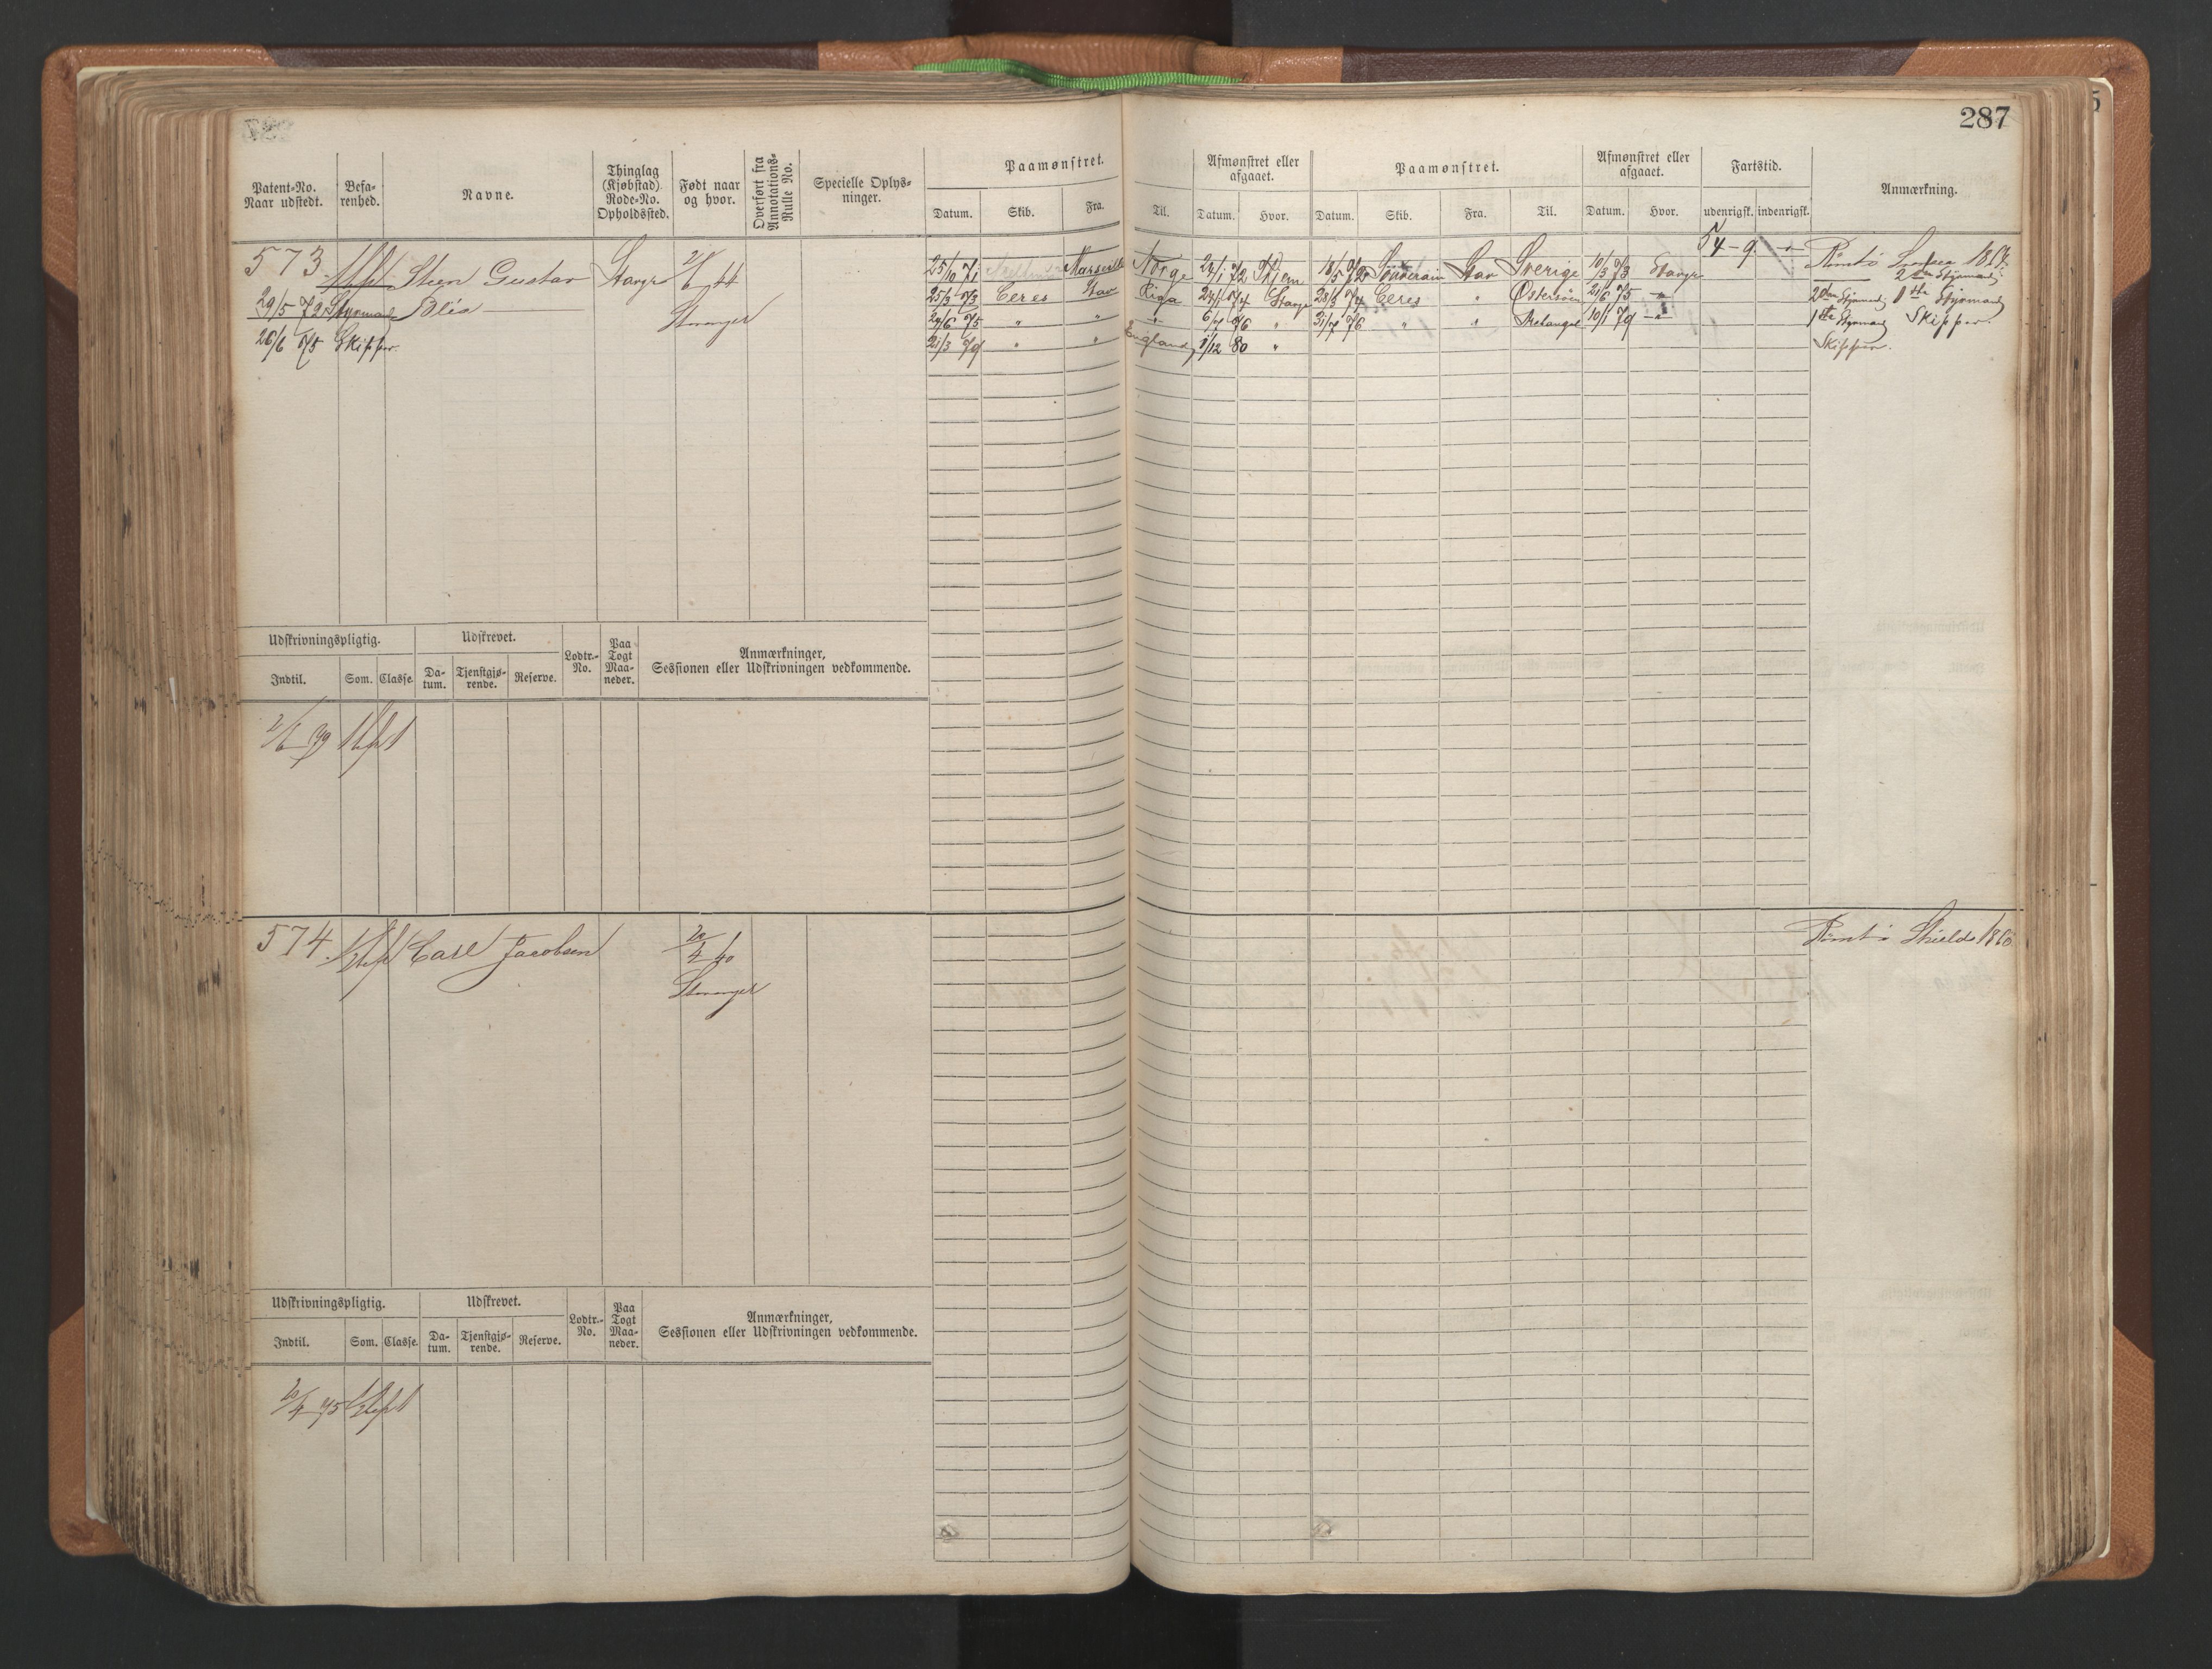 287
Patent-No. Naar udstedt. Befa-renhed. Navne. Thinglag (Kjøbstad). Rode-No. Opholdssted. Født naar og hvor. Overført fra Annotations-Rulle No. Specielle Oplys-ninger. Paamønstret. Afmønstret eller afgaaet. Paamønstret. Afmønstret eller afgaaet. Fartstid. Anmærkning.
Datum. Skib. Fra. Til. Datum. Hvor. Datum. Skib. Fra. Til. Datum. Hvor. udenrigsk. indenrigsk.
573 Steen Gustav Stavgr 2/6 44 25/10 71 Marseille Norge 24/1 72 Hjem 18/5 72 Souverain Stav Sverige 10/3 73 Stavgr 54-9 Rømt i 18
2den Styrmand;
29/5 72 Styrmand Bléa Stavanger 25/3 73 Ceres Stav Riga 24/1 74 Stavgr 28/3 74 Ceres " Østersøen 21/6 75 -"- 2den Styrmand; 1ste Styrmand
29/6 75 " " -"- 6/7 76 " 31/7 76 " " Archangel 10/1 79 -"- 1ste Styrmand Skipper.
26/6 75 Skipper. 21/3 79 " " England 1/12 80 " Skipper.
Udskrivningspligtig. Udskrevet. Lodtr.-No. Paa Togt Maa-neder. Anmærkninger, Sessionen eller Udskrivningen vedkommende.
Indtil. Som. Classe. Da-tum. Tjenstgjø-rende. Reserve.
2/6 79
574. Carl Jacobsen 20/4 40 Rømt i Shields 1860
Stavanger
Udskrivningspligtig. Udskrevet. Lodtr.-No. Paa Togt Maa-neder. Anmærkninger, Sessionen eller Udskrivningen vedkommende.
Indtil. Som. Classe. Da-tum. Tjenstgjø-rende. Reserve.
20/4 75